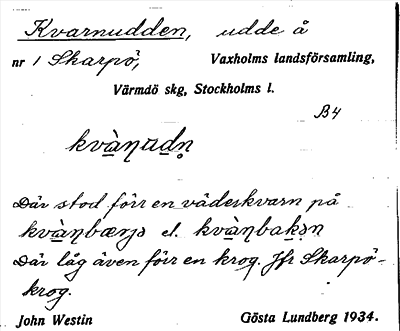 Kvarnudden, udde å
nr 1 Skarpö, Vaxholms landsförsamling,
Värmdö skg, Stockholms l.
B4
kvàṇudṇ
Där stod förr en väderkvarn på
kvàṇbærjə el. kvàṇbakən
Där låg även förr en krog. Jfr Skarpö-
krog.
John Westin Gösta Lundberg 1934.